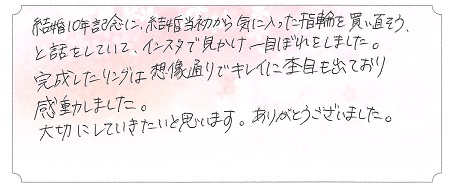 結婚10年記念に、結婚当初から気に入った指輪を買い直そう、
と話をしていて、インスタで見かけ一目ぼれをしました。
完成したリングは想像通りでキレイに杢目も出ており
感動しました。
大切にしていきたいと思います。ありがとうございました。